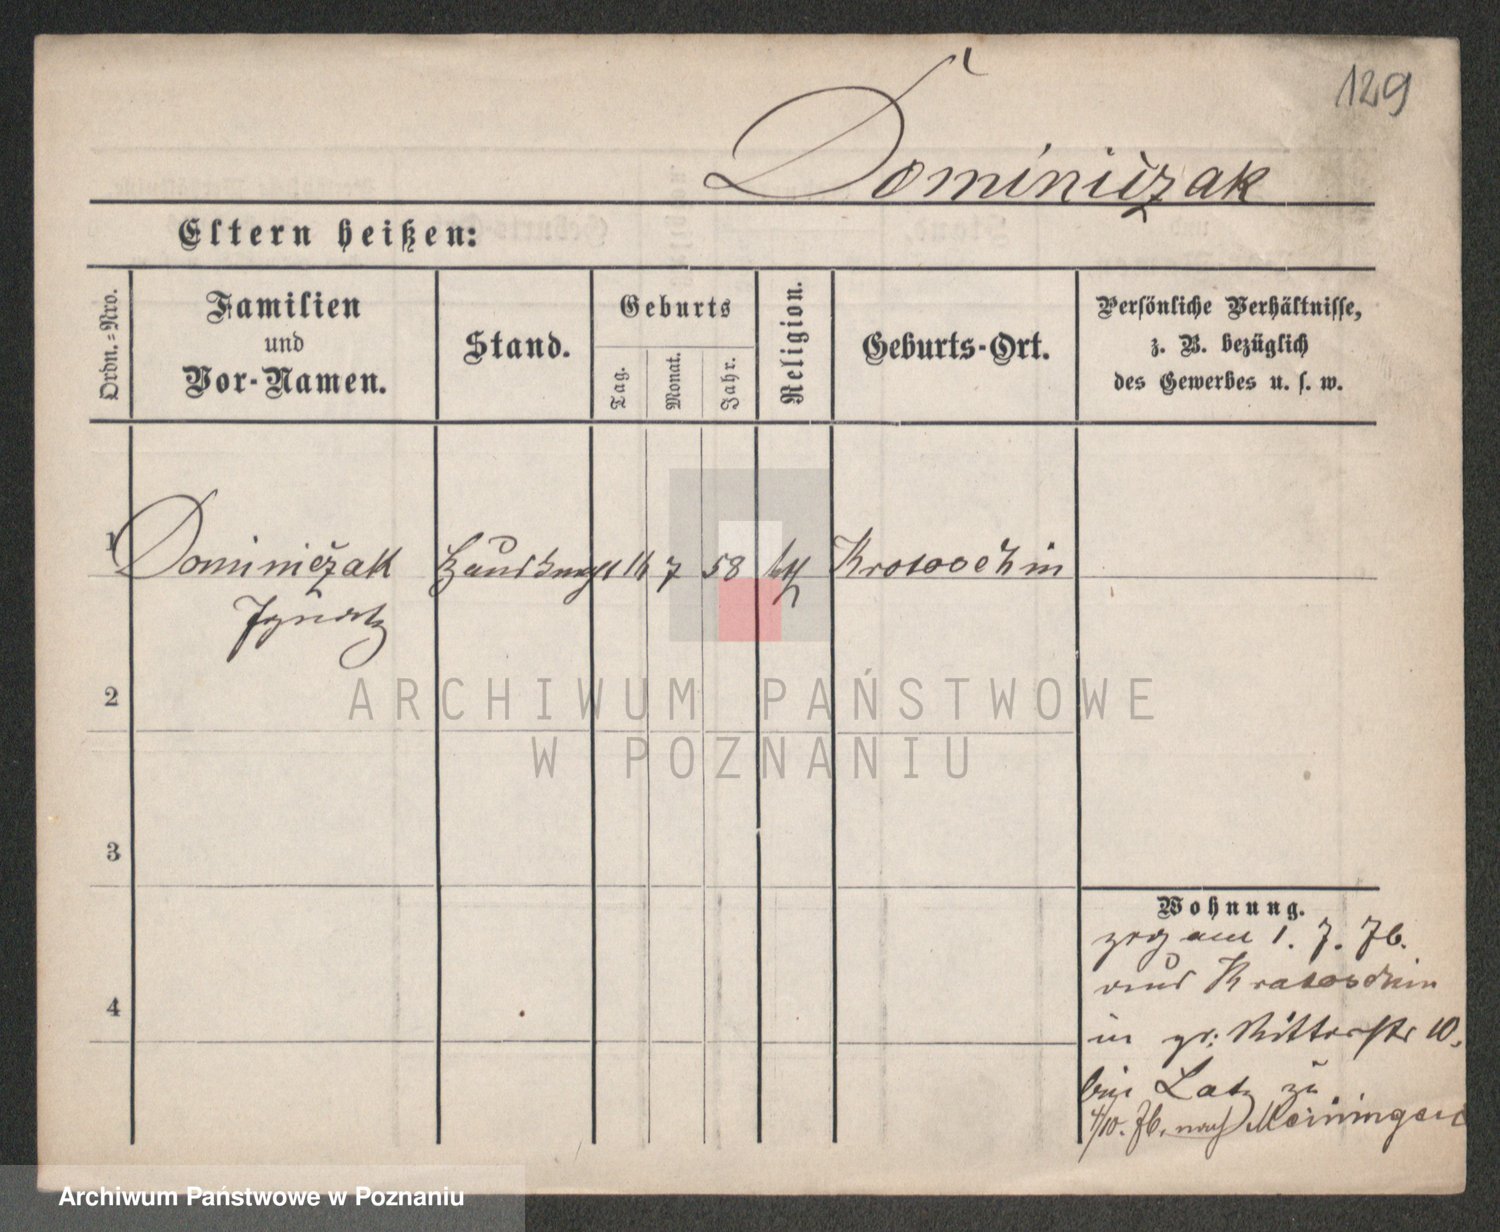 129
Dominiczak
Eltern heißen:
Ordn.=Nro.
Familien
und
Vor-Namen.
Stand.
Geburts
Tag.
Monat.
Jahr.
Religion.
Geburts-Ort.
Persönliche Verhältnisse,
z. B. bezüglich
des Gewerbes u. s. w.
1 Dominiczak Hausknecht 16 7 58 kth Krotoschin
Ignatz
2
ARCHIWUM PAŃSTWOWE
W POZNANIU
3
4
Wohnung.
zog am 1. 7. 76.
aus Krotoschin
in gr: Ritterstr 10.
bei Latz zu
4/10. 76. nach Meiningen
Archiwum Państwowe w Poznaniu